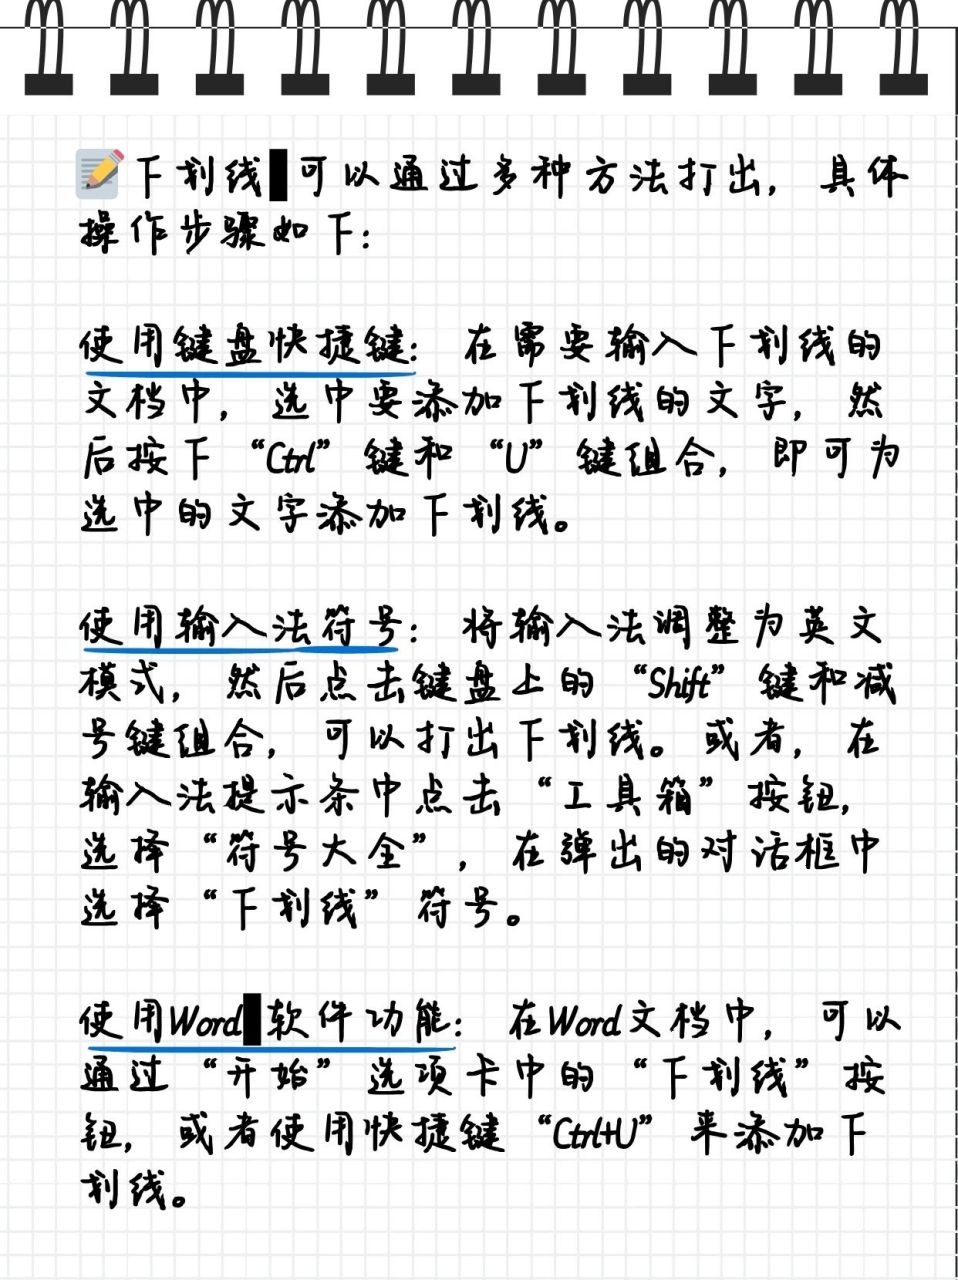 下划线 可以通过多种方法打出，具体
操作步骤如下：
使用键盘快捷键：在需要输入下划线的
文档中，选中要添加下划线的文字，然
后按下“Ctrl”键和“U”键组合，即可为
选中的文字添加下划线。
使用输入法符号：将输入法调整为英文
模式，然后点击键盘上的“Shift”键和减
号键组合，可以打出下划线。或者，在
输入法提示条中点击“工具箱”按钮，
选择“符号大全”，在弹出的对话框中
选择“下划线”符号。
使用Word 软件功能：在Word文档中，可以
通过“开始”选项卡中的“下划线”按
钮，或者使用快捷键“Ctrl+U”来添加下
划线。